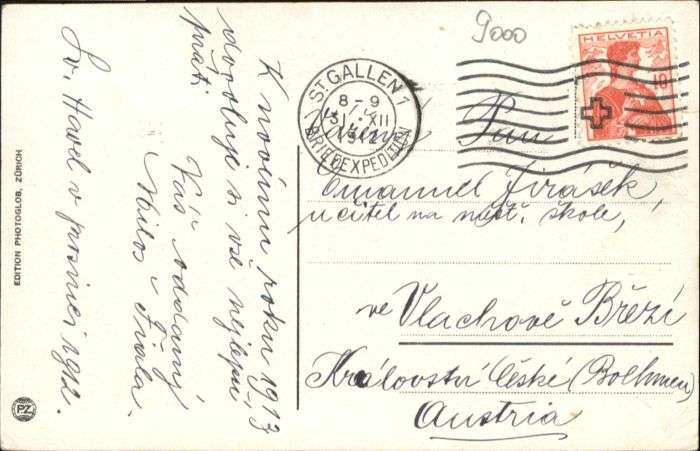 9000
HELVETIA
10
ST. GALLEN 1
8-9
31. XII
1912
BRIEFEXPEDITION
Pan
Emanuel Jirásek,
učitel na měšť. škole,
ve Vlachově Březí
Království České (Bolhmen)
Austria
K novému roku 1913
si vše nejlepší
přáti
Váš oddaný
Miloš Fiala.
Sv. Havel v prosinci 1912.
EDITION PHOTOGLOB, ZÜRICH
PZ